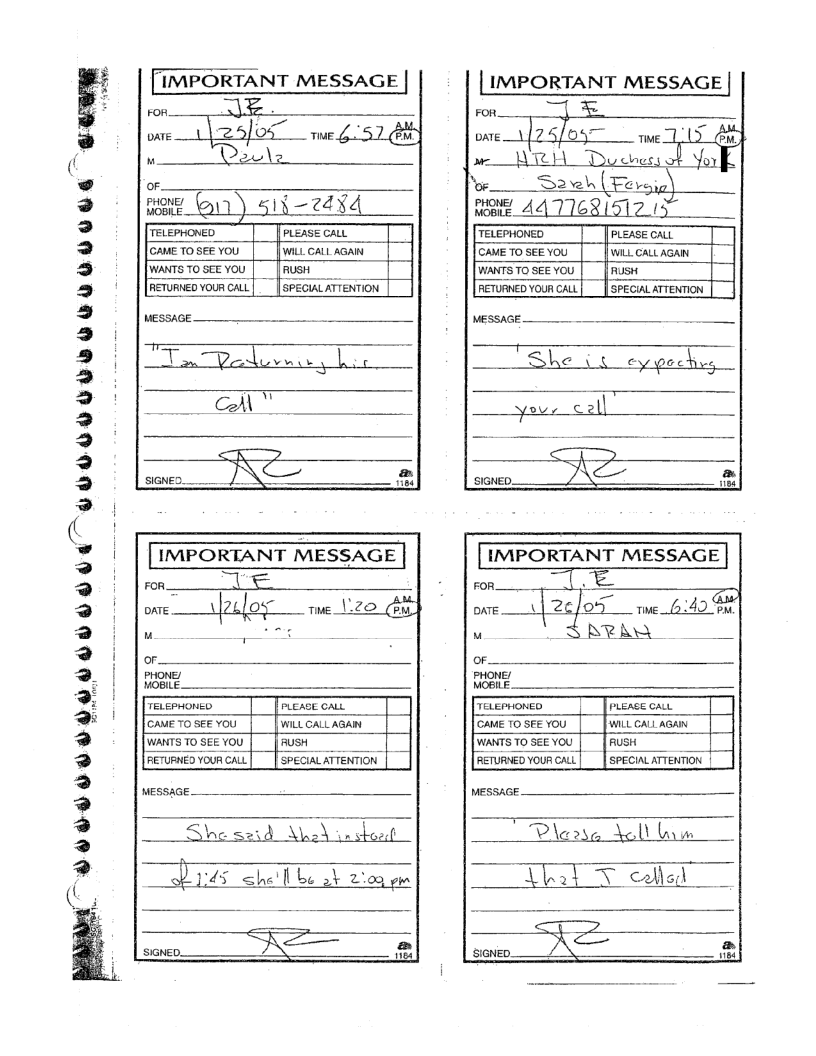 IMPORTANT MESSAGE
FOR J.E.
DATE 1/25/05 TIME 6:57 A.M. P.M.
M Paula
OF
PHONE/ MOBILE (917) 518-2484
TELEPHONED PLEASE CALL
CAME TO SEE YOU WILL CALL AGAIN
WANTS TO SEE YOU RUSH
RETURNED YOUR CALL SPECIAL ATTENTION
MESSAGE
"I am Returning his
Call"
SIGNED
1184
IMPORTANT MESSAGE
FOR J E
DATE 1/25/05 TIME 7:15 A.M. P.M.
M HRH Duchess of York
OF Sarah (Fergie)
PHONE/ MOBILE 447768151215
TELEPHONED PLEASE CALL
CAME TO SEE YOU WILL CALL AGAIN
WANTS TO SEE YOU RUSH
RETURNED YOUR CALL SPECIAL ATTENTION
MESSAGE
"She is expecting
your call"
SIGNED
1184
IMPORTANT MESSAGE
FOR J E
DATE 1/26/05 TIME 1:20 A.M. P.M.
M
OF
PHONE/ MOBILE
TELEPHONED PLEASE CALL
CAME TO SEE YOU WILL CALL AGAIN
WANTS TO SEE YOU RUSH
RETURNED YOUR CALL SPECIAL ATTENTION
MESSAGE
She said that instead
of 1:45 she'll be at 2:00 pm
SIGNED
1184
IMPORTANT MESSAGE
FOR J.E
DATE 1/26/05 TIME 6:40 A.M. P.M.
M SARAH
OF
PHONE/ MOBILE
TELEPHONED PLEASE CALL
CAME TO SEE YOU WILL CALL AGAIN
WANTS TO SEE YOU RUSH
RETURNED YOUR CALL SPECIAL ATTENTION
MESSAGE
"Please tell him
that I called
SIGNED
1184